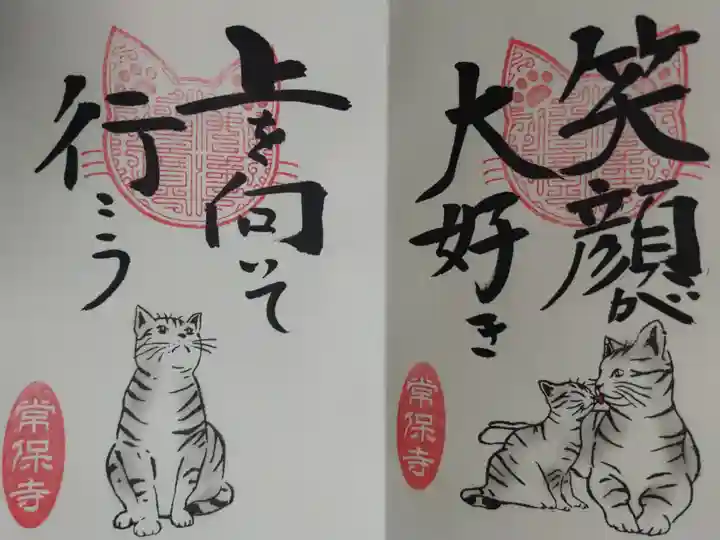 上を向いて
行こう
常保寺
笑顔が
大好き
常保寺